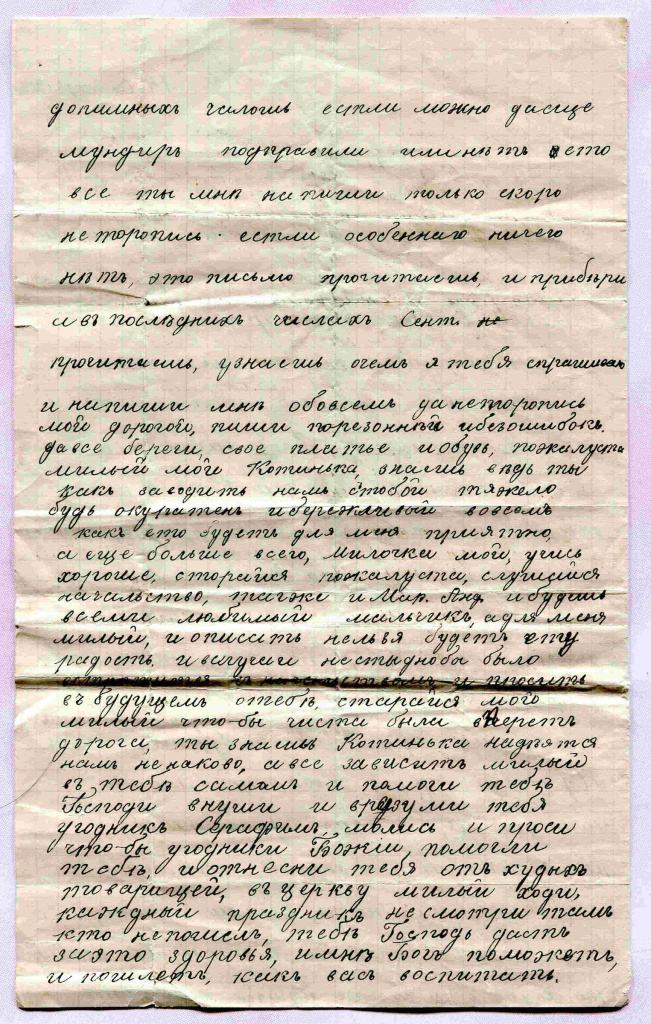 естли можно
мундиръ подправили или нѣтъ ето
все ты мнѣ напиши только скоро
не торопись. естли особеннаго ничего
нѣтъ, это письмо прочитаешь, и прибѣри
а въ послѣднихъ числахъ Сент.
прочитаешь, узнаешь очемъ я тебя спрашиваю
и напиши мнѣ обовсемъ да неторопись
мой дорогой, пиши порезонный ибезошибокъ.
да все береги, свое платье иобувь, пожалуста
милый мой Котинька, знаешь вѣдь ты
какъ заводить намъ стобой тяжело
будь окуратенъ ибережливый вовсемъ
какъ ето будетъ для меня приятно,
а еще больше всего, милочка мой, учись
хороше, старайся пожалуста, слушийся
начальство, также и Мар. Анд. ибудишь
всеми любимый мальчикъ, адля меня
милый, и описать нельзя будетъ ету
радость. нестыднобы было
и просить
въ будущемъ отебѣ, старайся мой
милый что-бы чиста была вперетъ
дорога, ты знаишь Котинька надѣятся
намъ ненаково, авсе зависитъ милый
въ тебѣ самомъ и помоги тебѣ
Господи внуши и вразуми тебя
угодникъ Серафимъ молись и проси
что-бы угодники Божьи, помогли
тебѣ, и отнесли тебя отъ худыхъ
товарищей, въ церкву милый ходи,
каждный праздникъ не смотри тамъ
кто непошелъ, тебѣ Господь дастъ
заэто здоровья, имнѣ Богъ поможетъ,
и пошлетъ, какъ васъ воспитать.